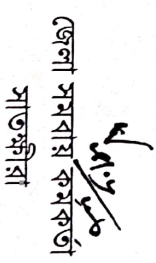 জেলা সমবায় কর্মকর্তা
সাতক্ষীরা